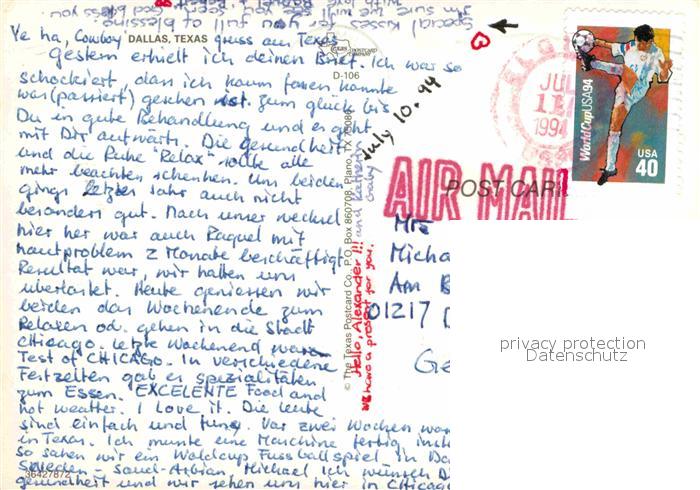 Special kisses for you full of blessing
I'm sure we will see
with love
Ye ha, Cowboy DALLAS, TEXAS gruss aus Texas
TEXAS POSTCARD COMPANY
Gestern erhielt ich deinen Brief. Ich war so
D-106
schockiert, dass ich kaum fassen konnte
was (passiert) geschen ist. zum glück bis
Du in gute Behandlung und es geht
mit Dir aufwärts. Die gesundheit
und die Ruhe "Relax" sollte alle
mehr beachten schenken. Uns beiden
gings letztes Jahr auch nicht
besonders gut. Nach unser wechsel
hier her war auch Raquel mit
hautproblem 2 Monate beschäftigt.
Resultat war, wir hatten uns
überlastet. Heute geniessen wir
beiden das Wochenende zum
Relaxen od. gehen in die Stadt
Chicago. letzte Wochenend war
Test of CHICAGO. In verschiedene
Festzelten gab es spezialitäten
zum Essen. EXCELENTE Food and
hot weatter. I love it. Die leute
sind einfach und tung. Vor zwei Wochen war
in Texas. Ich musste eine Maschine fertig inst
so sahen wir ein Woldcup Fussballspiel in Da
Sweden - Saudi-Arbian. Michael ich wünsch D
gesundheit und wir sehen uns hier in Chicago
36427872
© The Texas Postcard Co., P.O. Box 860708, Plano, TX 75086
July 10. 94
and Katherin
Hello, Alexander!!!
We have a present for you.
ELGIN
JUL
11
1994
World Cup USA94
USA
40
AIR MAIL
POST CAR
Micha
Am B
01217 D
Ge
privacy protection
Datenschutz